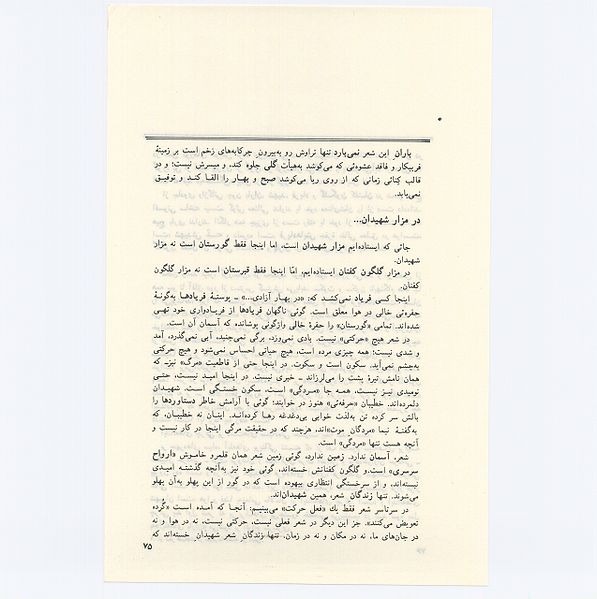 باران این شعر نمی‌بارد تنها تراوش رو به‌بیرون چرکابه‌های زخم است بر زمینهٔ
فریبکار و فاقد عشوه‌ئی که می‌کوشد به‌هیأت گلی جلوه کند، و میسرش نیست؛ و در
قالب کِنائی زمانی که از روی ریا می‌کوشد صبح و بهار را القا کند و توفیق
نمی‌یابد.
در مزار شهیدان...
جائی که ایستاده‌ایم مزار شهیدان است، اما اینجا فقط گورستان است نه مزار
شهیدان.
در مزار گلگون کفنان ایستاده‌ایم، امّا اینجا فقط قبرستان است نه مزار گلگون
کفنان.
اینجا کسی فریاد نمی‌کشد که: «در بهار آزادی...» ـ پوستهٔ فریادها به‌گونهٔ
حفره‌ئی خالی در هوا معلق است. گوئی ناگهان فریادها از فریادواری خود تهی
شده‌اند. تمامی «گورستان» را حفرهٔ خالی واژگونی پوشانده که آسمان آن است.
در شعر هیچ «حرکتی» نیست. بادی نمی‌وزد، برگی نمی‌جنبد، آبی نمی‌گذرد، آمد
و شدی نیست؛ همه چیزی مرده است، هیچ حیاتی احساس نمی‌شود و هیچ حرکتی
به‌چشم نمی‌آید. سکون است و سکوت. در اینجا حتی از قاطعیت «مرگ» نیزـ که
همان نامش تیرهٔ پشت را می‌لرزاند ـ خبری نیست. در اینجا امید نیست، حتـی
نومیدی نیـز نیـست، همـه جا «مـردگی» است، سکون خستگـی است. شهیـدان
دلمرده‌اند. خطیبان «حرفه‌ئی» هنوز در خوابند؛ گوئی با آرامش خاطر دستاوردها را
بالش سر کرده تن به‌لذت خوابی بی‌دغدغه رهـا کرده‌انـد. اینـان نه خطیبـان، که
به‌گفتـهٔ نیما «مردگان موت»اند، هرچند که در حقیقت مرگی اینجا در کار نیست و
آنچه هست تنها «مردگی» است.
شعر، آسمان ندارد. زمین ندارد، گوئی زمین شعر همان قلمرو خاموش «ارواح
سرسری» است.و گلگون کفنانش خسته‌اند، گوئی خود نیز به‌آنچه گذشتـه امیـدی
نبسته‌اند، و از سرخستگی انتظاری بیهوده است که در گور از این پهلو به‌آن پهلو
می‌شوند. تنها زندگان شعر، همین شهیدان‌اند.
در سرتاسر شعر فقط یك «فعل حرکت» می‌بینیم: آنجـا که آمـده اسـت «گُرده
تعویض می‌کنند». جز این دیگر در شعر فعلی نیست، حرکتی نیست، نه در هوا و نه
در جان‌های ما، نه در مکان و نه در زمان. تنهـا زندگـان شعر شهیدان خسته‌اند که
۷۵